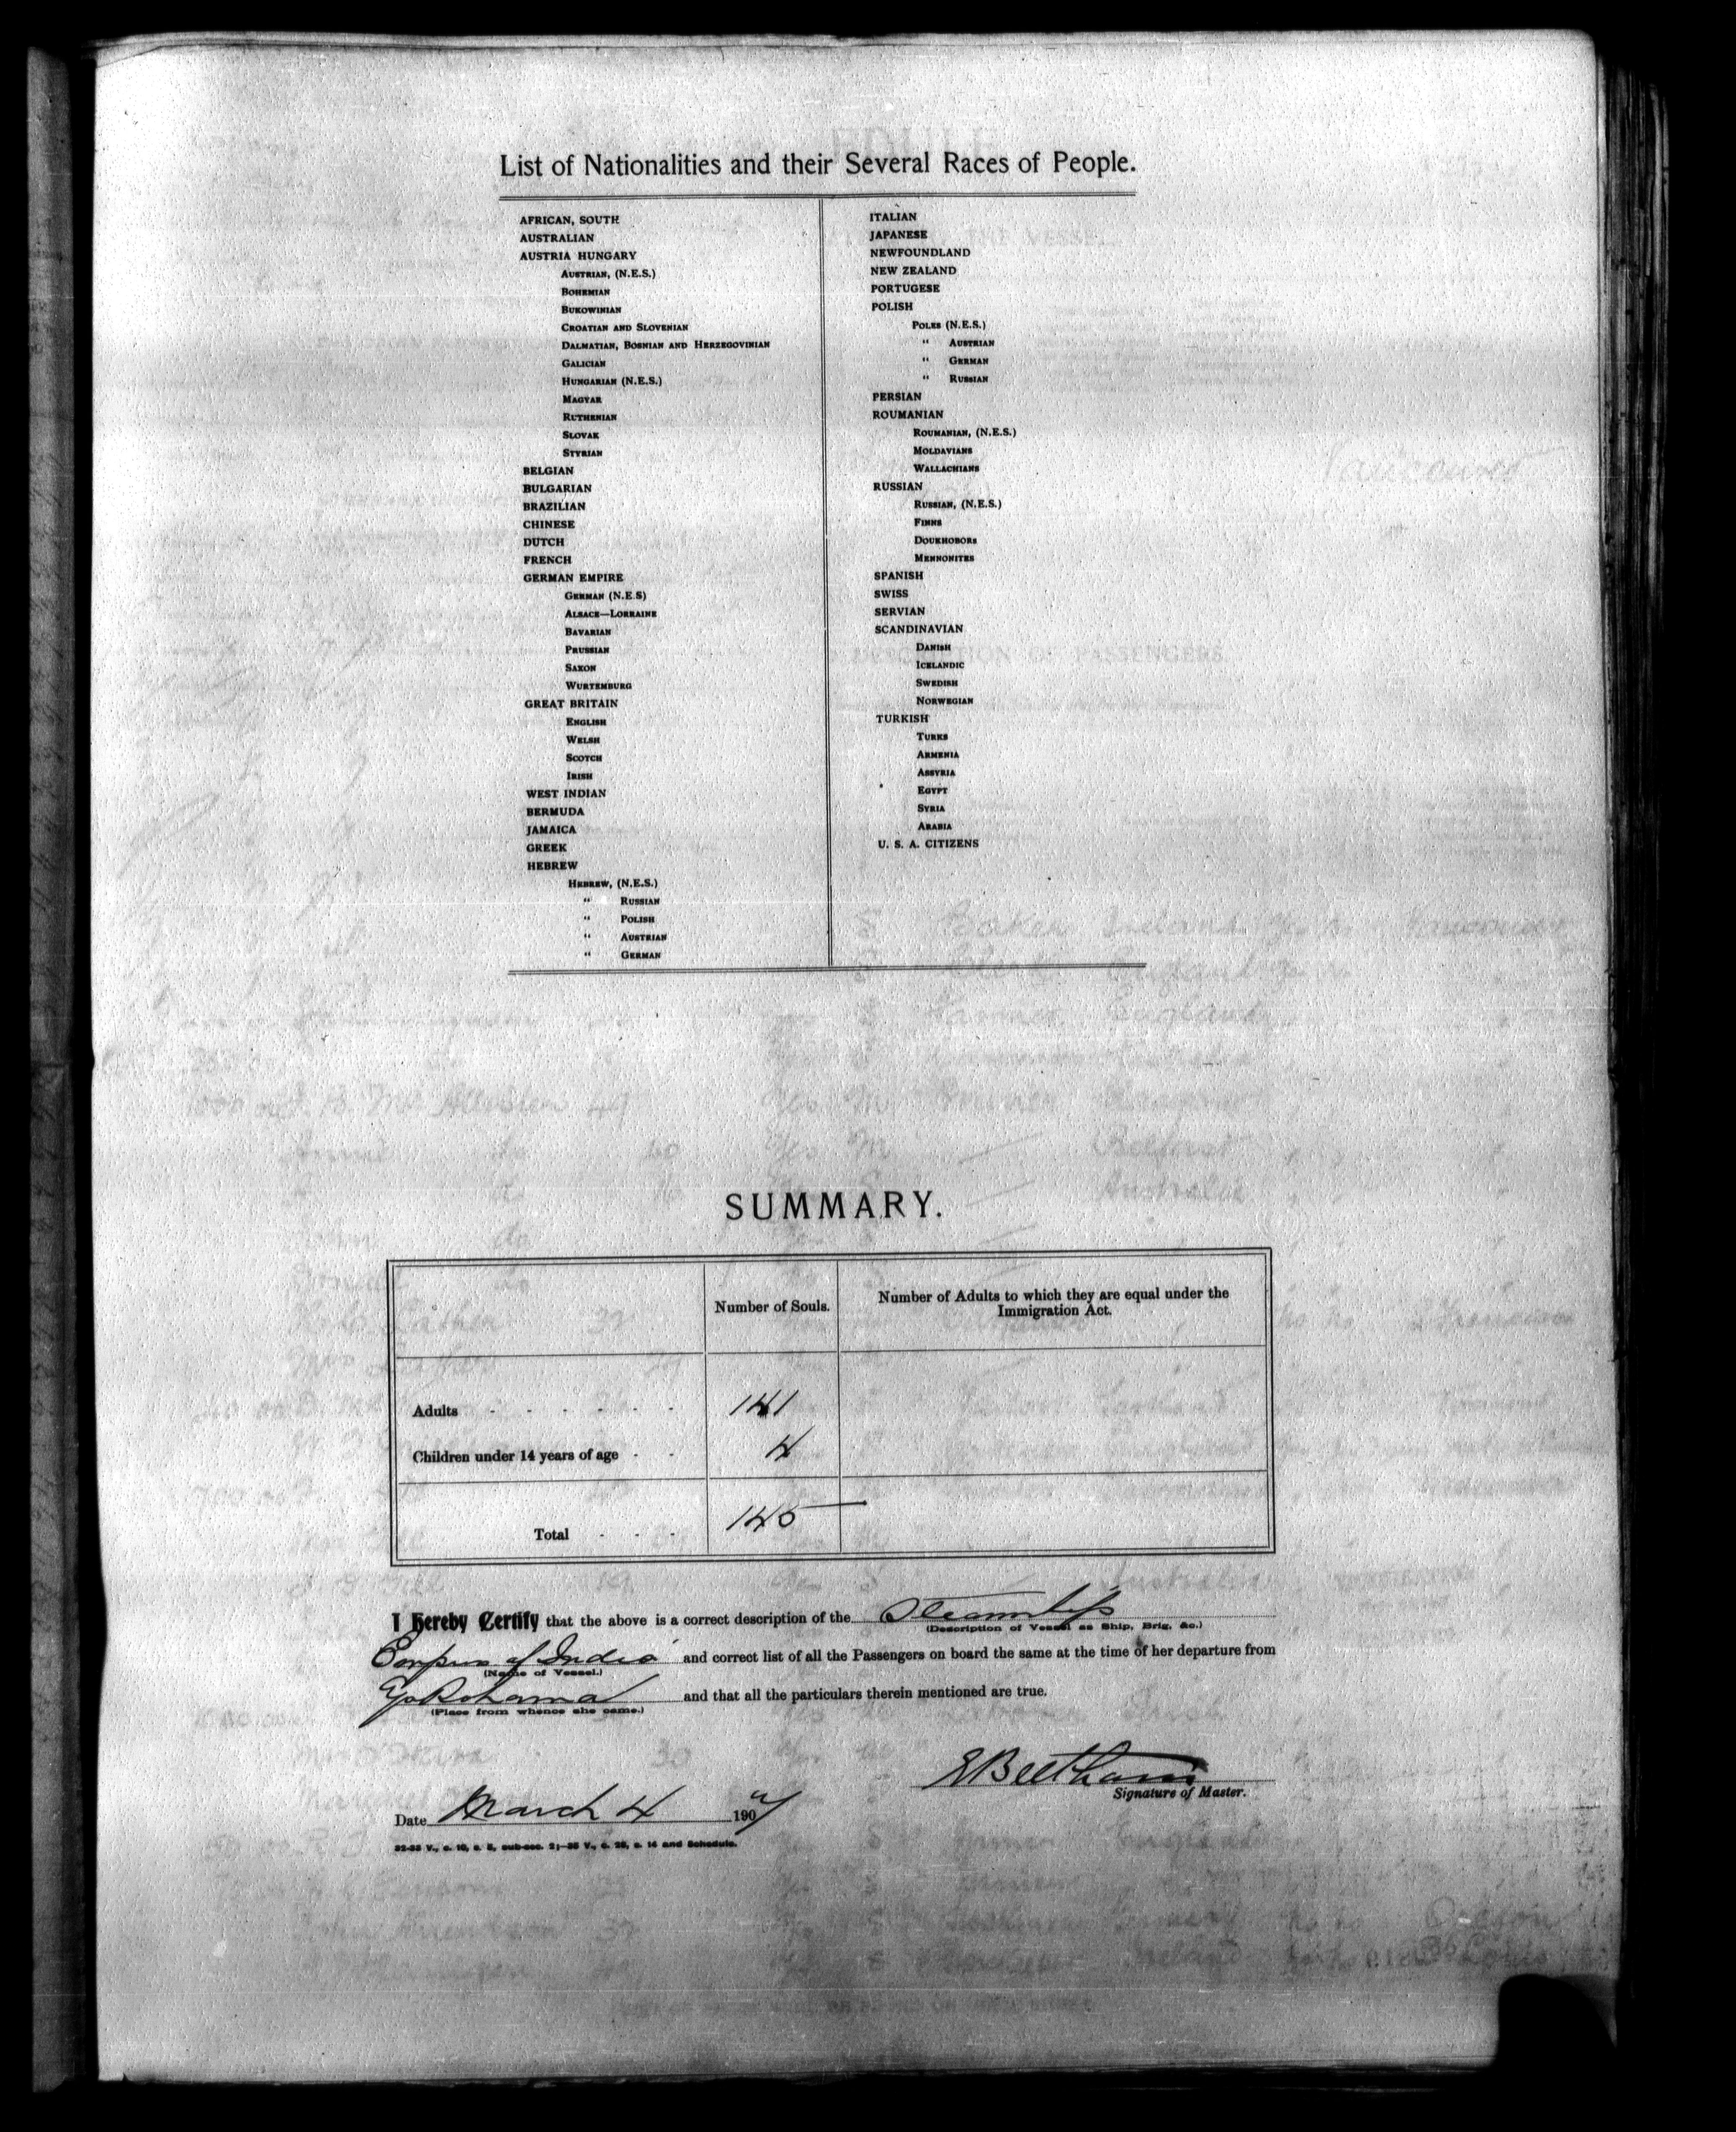 List of Nationalities and their Several Races of People.
AFRICAN, SOUTH
AUSTRALIAN
AUSTRIA HUNGARY
AUSTRIAN, (N.E.S.)
BOHEMIAN
BUKOWINIAN
CROATIAN AND SLOVENIAN
DALMATIAN, BOSNIAN AND HERZEGOVINIAN
GALICIAN
HUNGARIAN (N.E.S.)
MAGYAR
RUTHENIAN
SLOVAK
STYRIAN
BELGIAN
BULGARIAN
BRAZILIAN
CHINESE
DUTCH
FRENCH
GERMAN EMPIRE
GERMAN (N.E.S)
ALSACE—LORRAINE
BAVARIAN
PRUSSIAN
SAXON
WURTEMBURG
GREAT BRITAIN
ENGLISH
WELSH
SCOTCH
IRISH
WEST INDIAN
BERMUDA
JAMAICA
GREEK
HEBREW
HEBREW, (N.E.S.)
" RUSSIAN
" POLISH
" AUSTRIAN
" GERMAN
ITALIAN
JAPANESE
NEWFOUNDLAND
NEW ZEALAND
PORTUGESE
POLISH
POLES (N.E.S.)
" AUSTRIAN
" GERMAN
" RUSSIAN
PERSIAN
ROUMANIAN
ROUMANIAN, (N.E.S.)
MOLDAVIANS
WALLACHIANS
RUSSIAN
RUSSIAN, (N.E.S.)
FINNS
DOUKHOBORS
MENNONITES
SPANISH
SWISS
SERVIAN
SCANDINAVIAN
DANISH
ICELANDIC
SWEDISH
NORWEGIAN
TURKISH
TURKS
ARMENIA
ASSYRIA
EGYPT
SYRIA
ARABIA
U. S. A. CITIZENS
SUMMARY.
Number of Souls.
Number of Adults to which they are equal under the
Immigration Act.
Adults - - - - - - 141
Children under 14 years of age - - 4
Total - - - 145
I Hereby Certify that the above is a correct description of the Steamship
(Description of Vessel as Ship, Brig, &c.)
Empress of India and correct list of all the Passengers on board the same at the time of her departure from
(Name of Vessel.)
Yokohama and that all the particulars therein mentioned are true.
(Place from whence she came.)
E Beetham
Signature of Master.
Date March 4 1907
32-33 V., c. 10, s. 8, sub-sec. 2;—35 V., c. 28, s. 14 and Schedule.